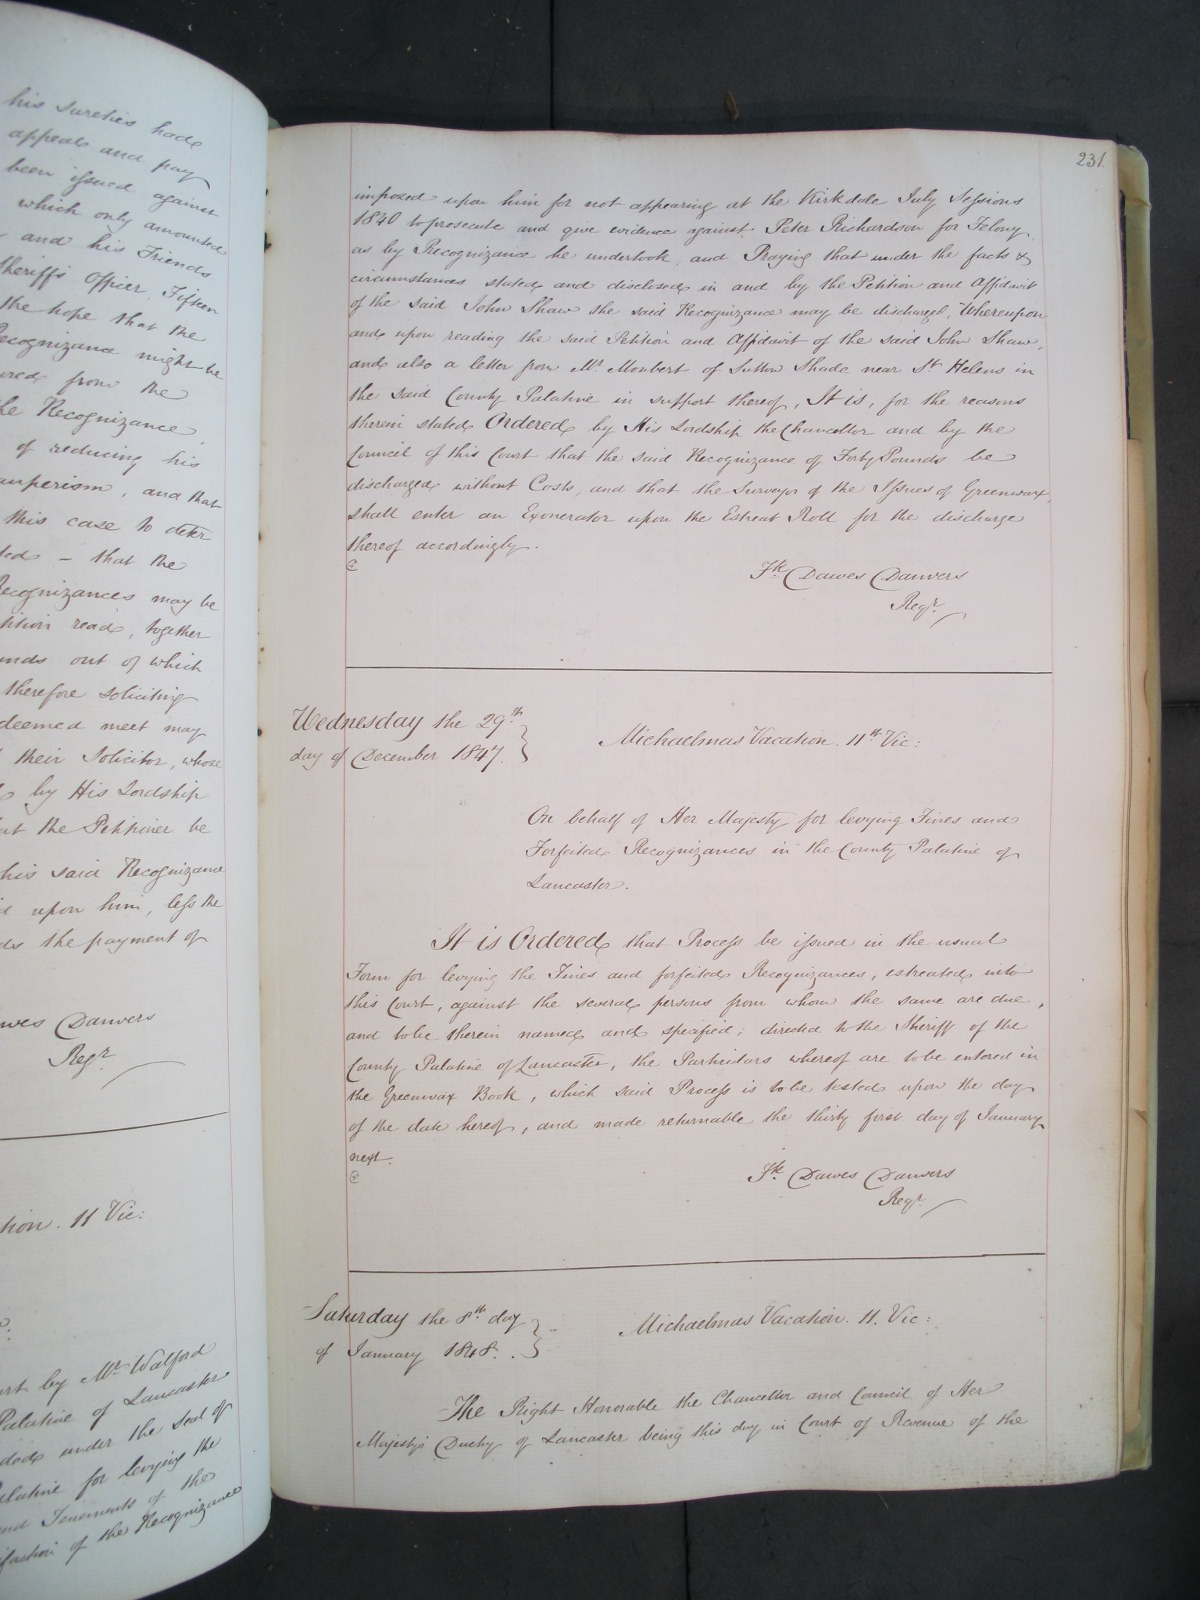 his sureties had
appeal and pay
been issued against
which only amounted
and his Friends
Sheriffs Officer Fifteen
the hope that the
Recognizance might be
from the
the Recognizance,
of reducing his
pauperism, and that
this case to deter
that the
Recognizances may be
read, together
out of which
therefore soliciting
deemed meet may
their Solicitor, whose
by His Lordship
the Petitioner be
his said Recognizance
upon him, less the
the payment of
Danvers
Regr.
11 Vic:
by Mr. Walford
Palatine of Lancaster
under the Seal of
for levying the
Tenements of the
of the Recognizance
231.
imposed upon him for not appearing at the Kirkdale July Sessions
1840 to prosecute and give evidence against Peter Richardson for Felony
as by Recognizance he undertook, and Praying that under the facts &
circumstances stated and disclosed in and by the Petition and Affidavit
of the said John Shaw the said Recognizance may be discharged, Whereupon
and upon reading the said Petition and Affidavit of the said John Shaw,
and also a letter from Mr. Monbert of Sutton Shade near St. Helens in
the said County Palatine in support thereof, It is, for the reasons
therein stated Ordered by His Lordship the Chancellor and by the
Council of this Court that the said Recognizance of Forty Pounds be
discharged without Costs, and that the Surveyor of the Issues of Greenwax
shall enter an Exonerator upon the Estreat Roll for the discharge
thereof accordingly.
Fk. Dawes Danvers
Regr.
Wednesday the 29th
day of December 1847.
Michaelmas Vacation. 11th Vic:
On behalf of Her Majesty for levying Fines and
Forfeited Recognizances in the County Palatine of
Lancaster.
It is Ordered that Process be issued in the usual
Form for levying the Fines and forfeited Recognizances, estreated into
this Court, against the several persons from whom the same are due,
and to be therein named and specified; directed to the Sheriff of the
County Palatine of Lancaster, the Particulars whereof are to be entered in
the Greenwax Book, which said Process is to be tested upon the day
of the date hereof, and made returnable the thirty first day of January
next.
Fk. Dawes Danvers
Regr.
Saturday the 8th day
of January 1848.
Michaelmas Vacation. 11. Vic:
The Right Honorable the Chancellor and Council of Her
Majesty's Duchy of Lancaster being this day in Court of Revenue of the